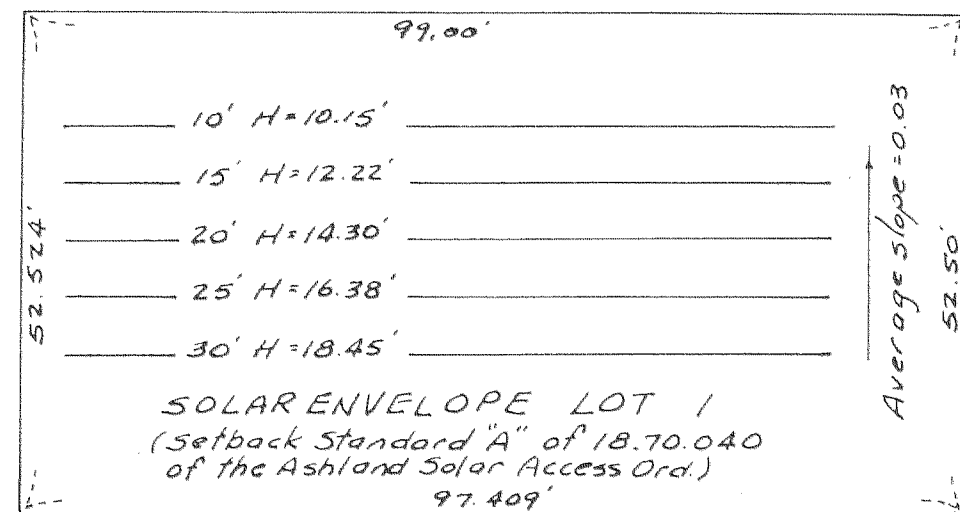 99.00'
10' H=10.15'
15' H=12.22'
20' H=14.30'
25' H=16.38'
30' H=18.45'
52.524'
Average slope=0.03
52.50'
SOLAR ENVELOPE LOT 1
(Setback Standard "A" of 18.70.040
of the Ashland Solar Access Ord.)
97.409'